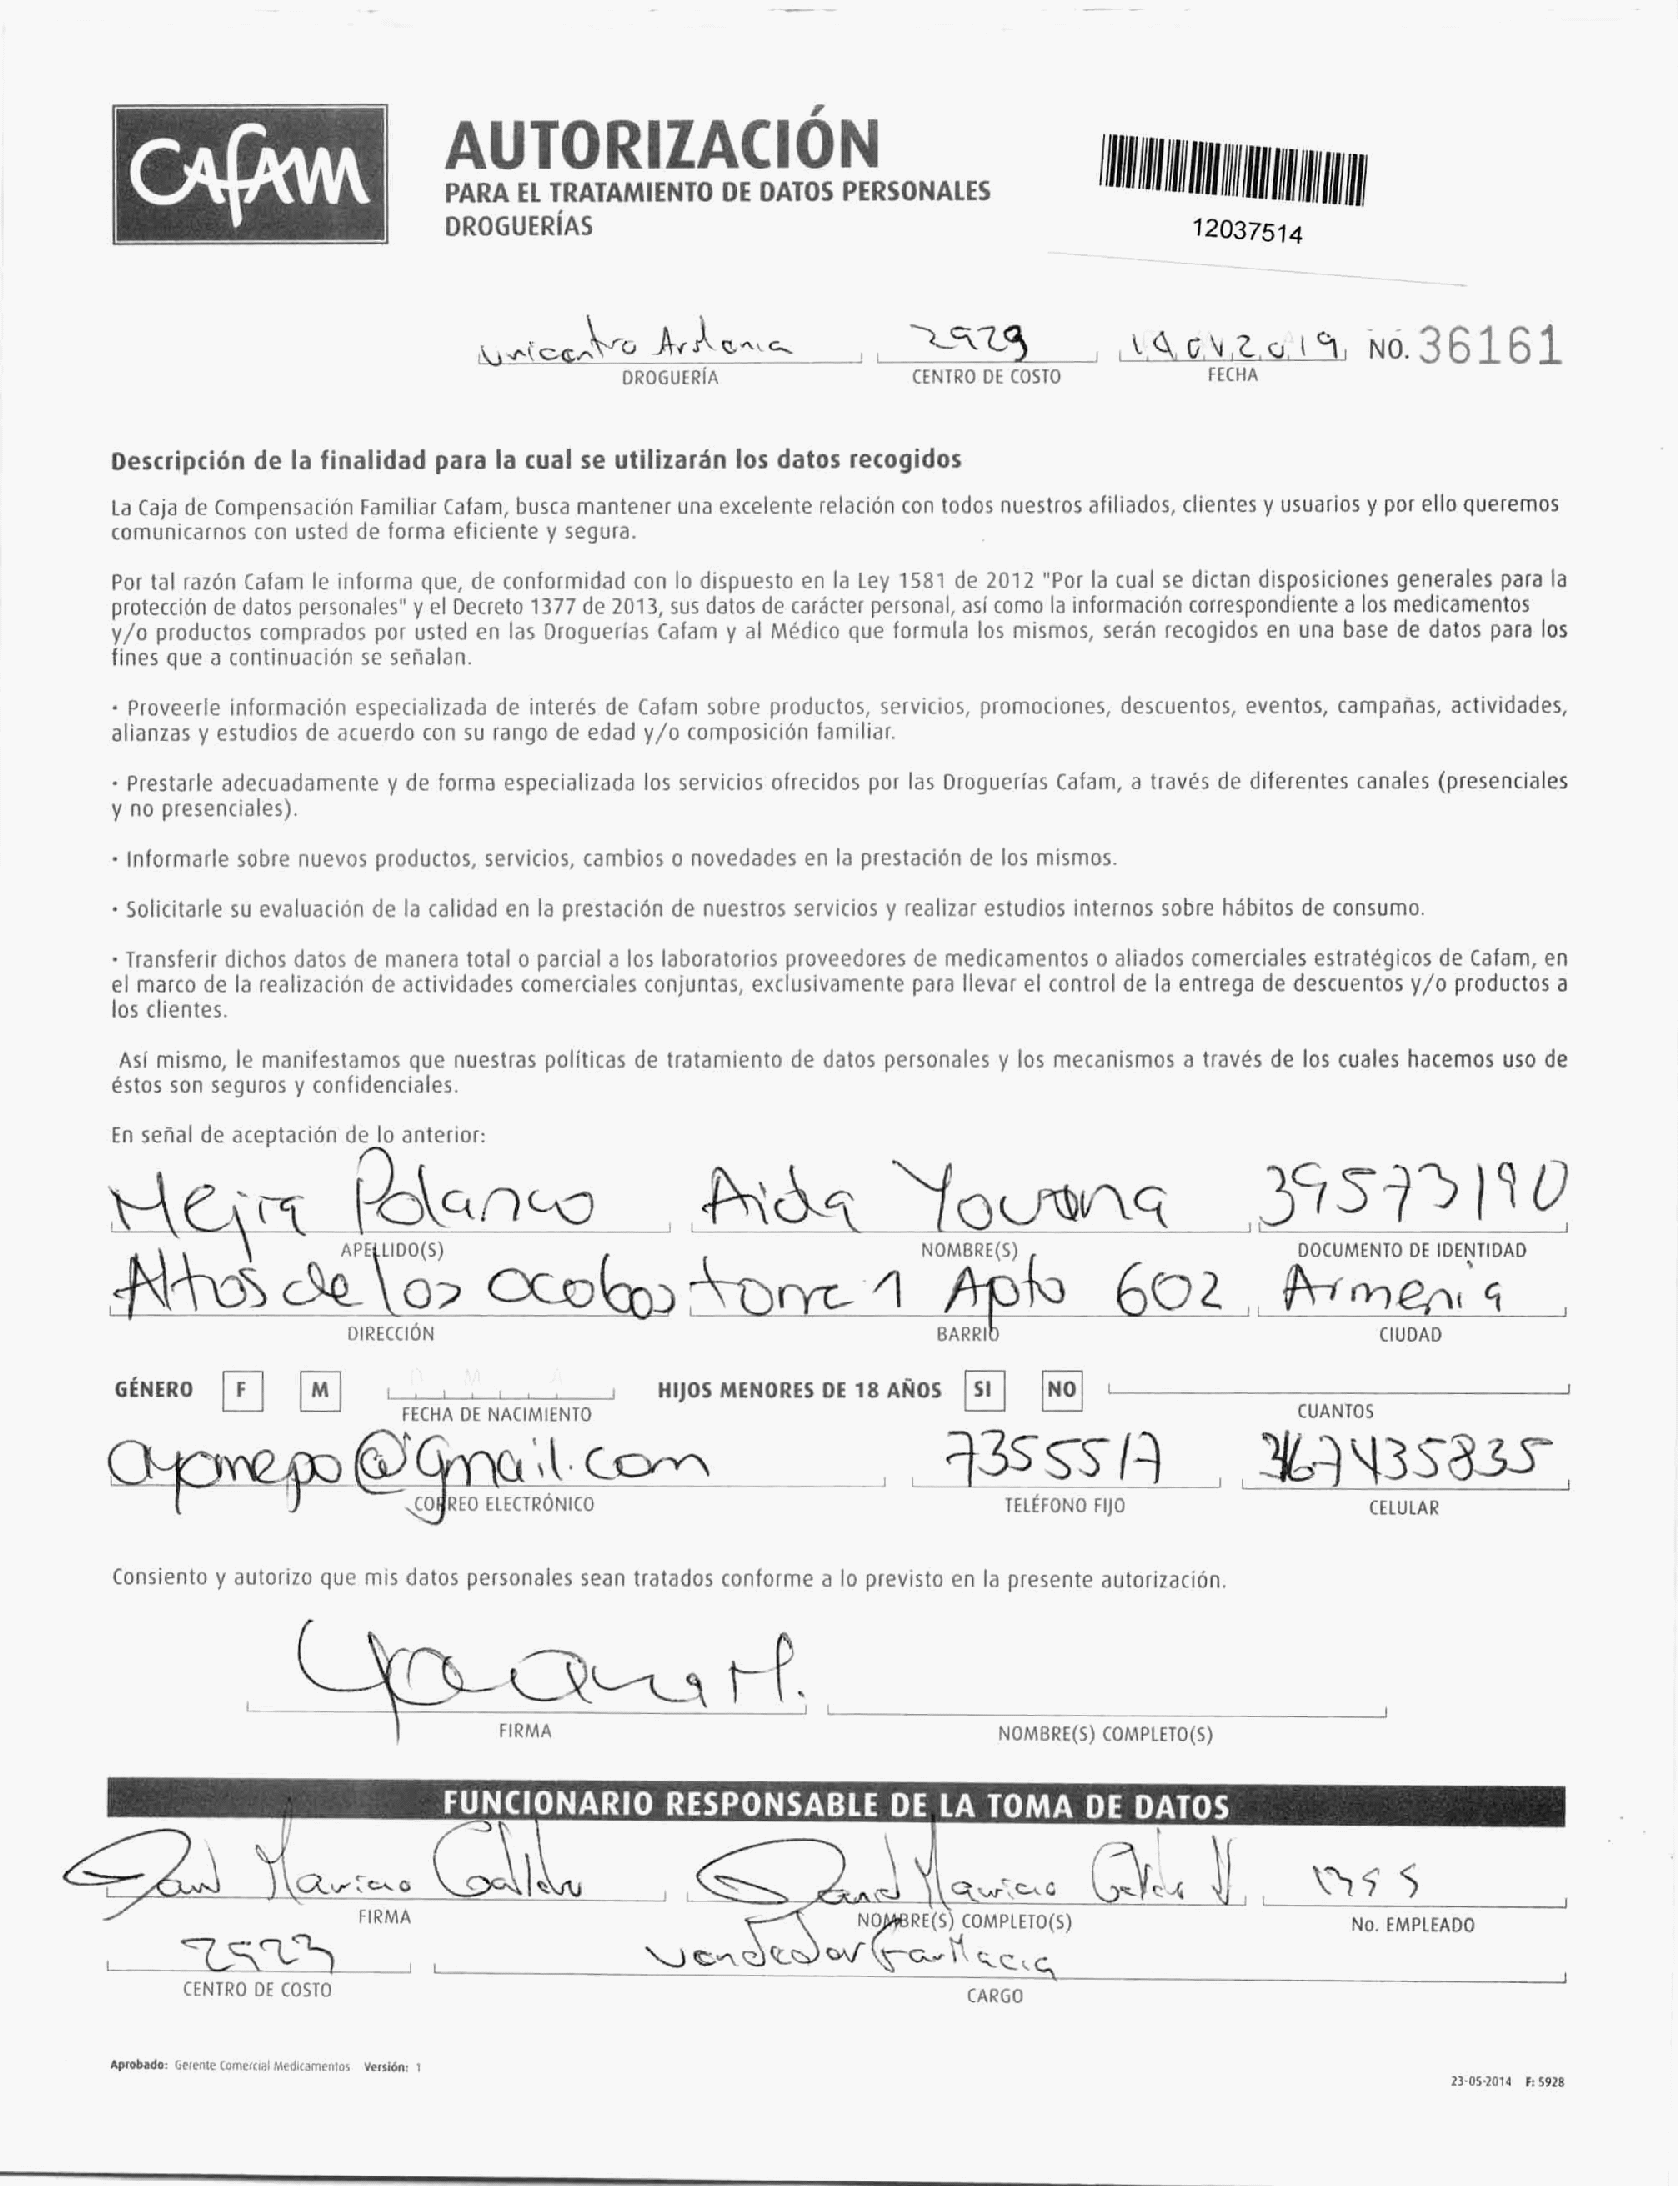 CAFAM
AUTORIZACIÓN
PARA EL TRATAMIENTO DE DATOS PERSONALES
DROGUERÍAS
12037514
Unicentro 2929 NO. 36161
DROGUERÍA CENTRO DE COSTO FECHA
Descripción de la finalidad para la cual se utilizarán los datos recogidos
La Caja de Compensación Familiar Cafam, busca mantener una excelente relación con todos nuestros afiliados, clientes y usuarios y por ello queremos
comunicarnos con usted de forma eficiente y segura.
Por tal razón Cafam le informa que, de conformidad con lo dispuesto en la Ley 1581 de 2012 "Por la cual se dictan disposiciones generales para la
protección de datos personales" y el Decreto 1377 de 2013, sus datos de carácter personal, así como la información correspondiente a los medicamentos
y/o productos comprados por usted en las Droguerías Cafam y al Médico que formula los mismos, serán recogidos en una base de datos para los
fines que a continuación se señalan.
· Proveerle información especializada de interés de Cafam sobre productos, servicios, promociones, descuentos, eventos, campañas, actividades,
alianzas y estudios de acuerdo con su rango de edad y/o composición familiar.
· Prestarle adecuadamente y de forma especializada los servicios ofrecidos por las Droguerías Cafam, a través de diferentes canales (presenciales
y no presenciales).
· Informarle sobre nuevos productos, servicios, cambios o novedades en la prestación de los mismos.
· Solicitarle su evaluación de la calidad en la prestación de nuestros servicios y realizar estudios internos sobre hábitos de consumo.
· Transferir dichos datos de manera total o parcial a los laboratorios proveedores de medicamentos o aliados comerciales estratégicos de Cafam, en
el marco de la realización de actividades comerciales conjuntas, exclusivamente para llevar el control de la entrega de descuentos y/o productos a
los clientes.
Así mismo, le manifestamos que nuestras políticas de tratamiento de datos personales y los mecanismos a través de los cuales hacemos uso de
éstos son seguros y confidenciales.
En señal de aceptación de lo anterior:
Mejia Polanco Aida Yovana 39573190
APELLIDO(S) NOMBRE(S) DOCUMENTO DE IDENTIDAD
Altos de los ocobos torre 1 Apto 602 Armenia
DIRECCIÓN BARRIO CIUDAD
GÉNERO F M D M A HIJOS MENORES DE 18 AÑOS SI NO
FECHA DE NACIMIENTO CUANTOS
ayomepo@gmail.com 7355517
CORREO ELECTRÓNICO TELÉFONO FIJO CELULAR
Consiento y autorizo que mis datos personales sean tratados conforme a lo previsto en la presente autorización.
FIRMA NOMBRE(S) COMPLETO(S)
FUNCIONARIO RESPONSABLE DE LA TOMA DE DATOS
Mauricio Mauricio
FIRMA NOMBRE(S) COMPLETO(S) No. EMPLEADO
Vendedor Farmacia
CENTRO DE COSTO CARGO
Aprobado: Gerente Comercial Medicamentos Versión: 1
23-05-2014 F: 5928